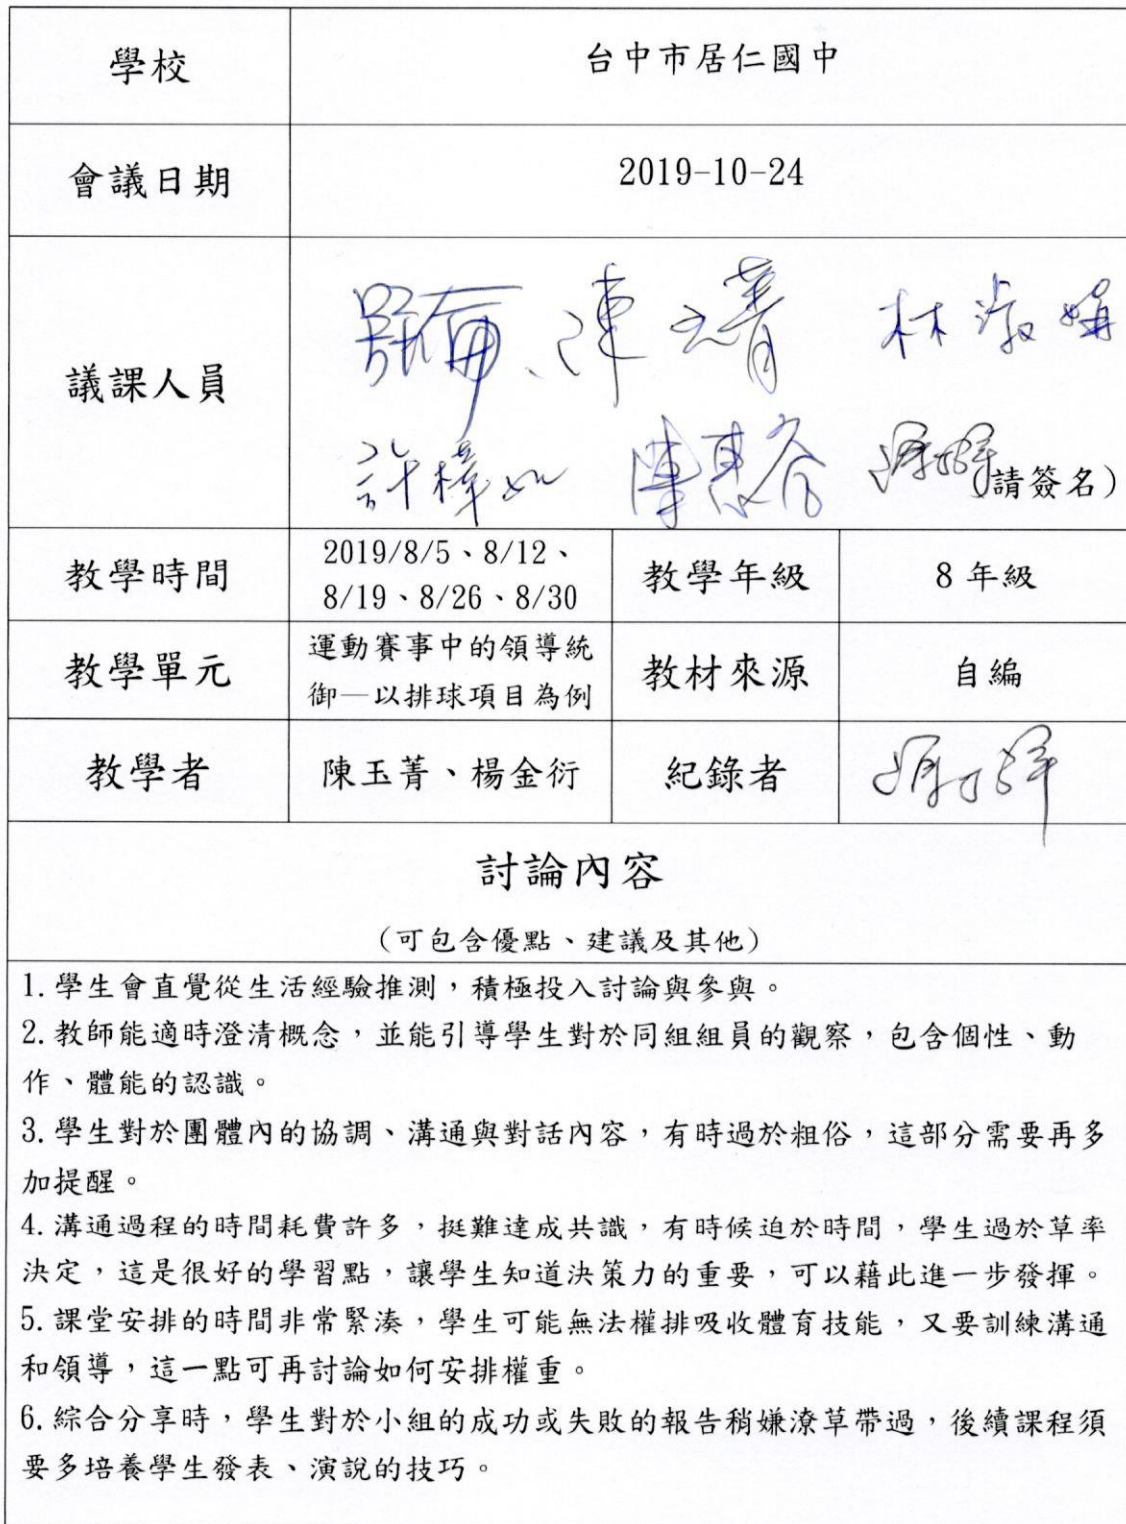 學校 台中市居仁國中
會議日期 2019-10-24
陳玉菁 林淑娟
議課人員
許樟如 陳惠谷 請簽名)
教學時間 2019/8/5、8/12、
8/19、8/26、8/30 教學年級 8 年級
教學單元 運動賽事中的領導統
御—以排球項目為例 教材來源 自編
教學者 陳玉菁、楊金衍 紀錄者
討論內容
(可包含優點、建議及其他)
1.學生會直覺從生活經驗推測,積極投入討論與參與。
2.教師能適時澄清概念,並能引導學生對於同組組員的觀察,包含個性、動
作、體能的認識。
3.學生對於團體內的協調、溝通與對話內容,有時過於粗俗,這部分需要再多
加提醒。
4.溝通過程的時間耗費許多,挺難達成共識,有時候迫於時間,學生過於草率
決定,這是很好的學習點,讓學生知道決策力的重要,可以藉此進一步發揮。
5.課堂安排的時間非常緊湊,學生可能無法權排吸收體育技能,又要訓練溝通
和領導,這一點可再討論如何安排權重。
6.綜合分享時,學生對於小組的成功或失敗的報告稍嫌潦草帶過,後續課程須
要多培養學生發表、演說的技巧。